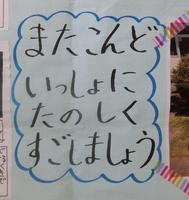 またこんど
いっしょに
たのしく
すごしましょう